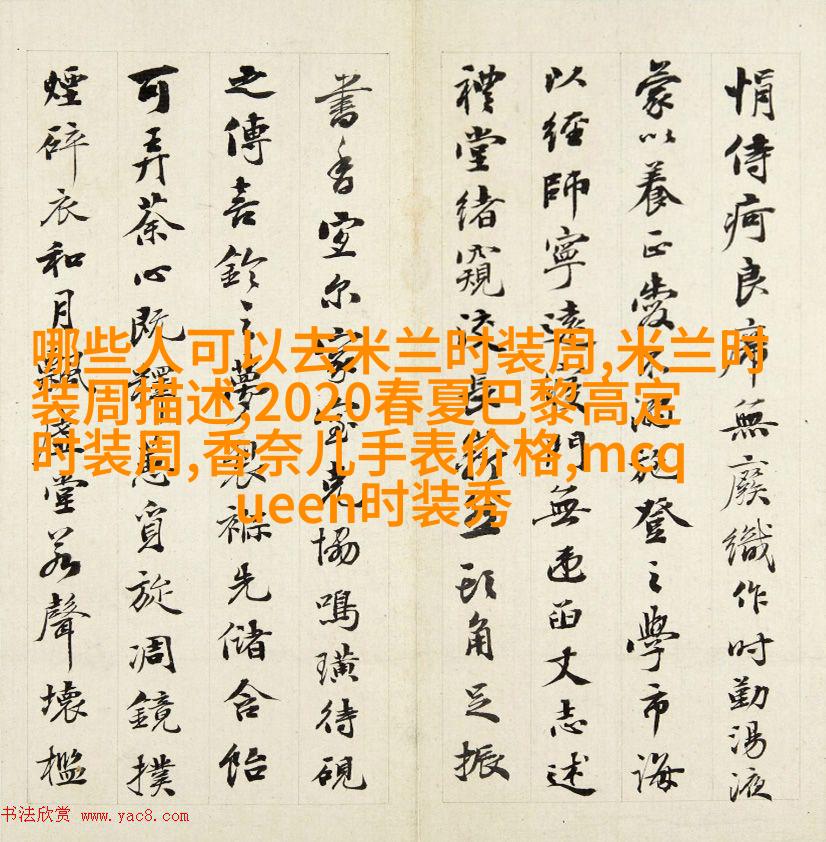 侍疴良席無廢織作时勤湯液
蒙以養正愛登之學市海
以經師寧遠門無丈志述
禮堂緒窺長角足振
書香室尔家克協鳴璜待硯
之傳喜鈴之夢製褓先儲含飴
可弄荼心既旋凋鏡撲
煙碎衣和月堂聲壞檻
哪些人可以去米兰时装周,米兰时
装周描述,2020春夏巴黎高定
时装周,香奈儿手表价格,mcq
ueen时装秀
书法欣赏 www.yac8.com